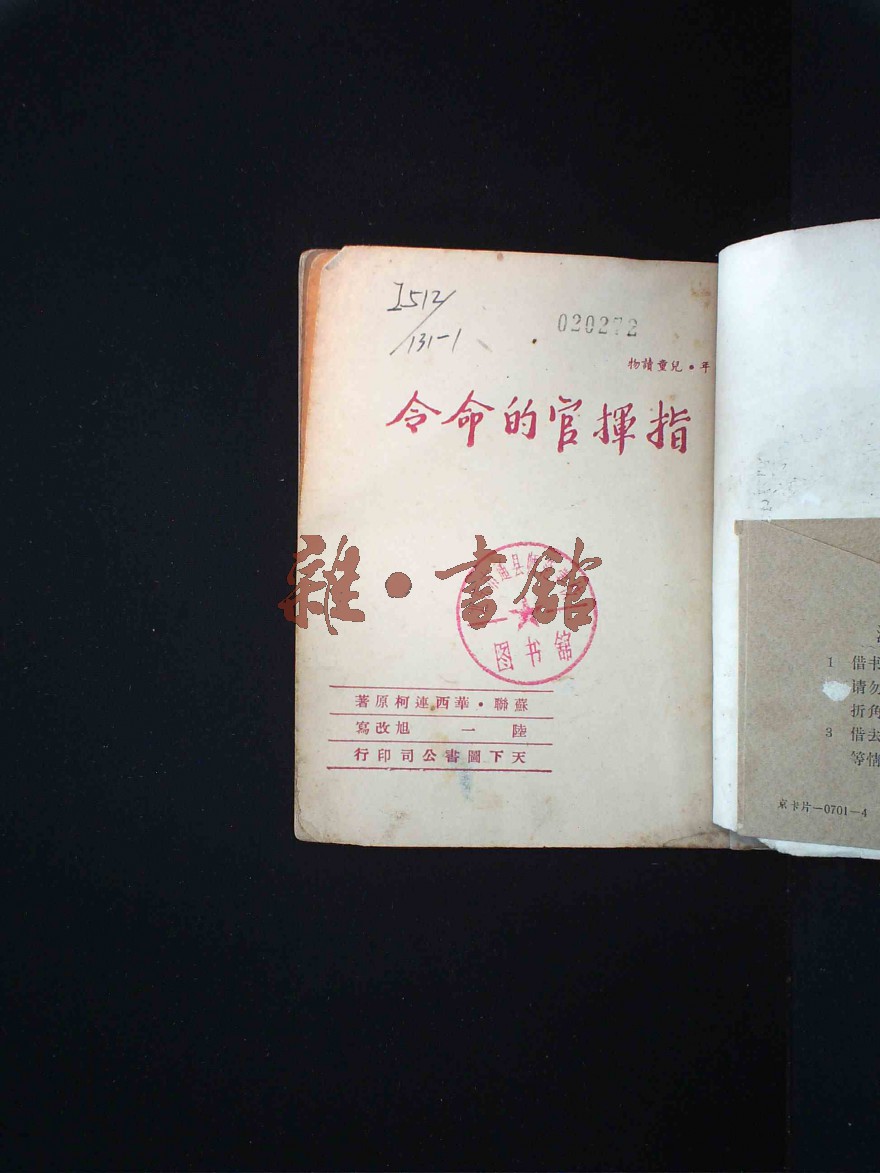 I512/
131-1
020272
年·兒童讀物
指揮官的命令
雜·書館
通县
图书馆
蘇聯·華西連柯原著
陸一旭改寫
天下圖書公司印行
1 借书
请勿
折角
3 借去
等情
京卡片—0701—4